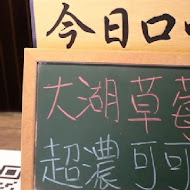 今日口
大湖草莓
超濃可可